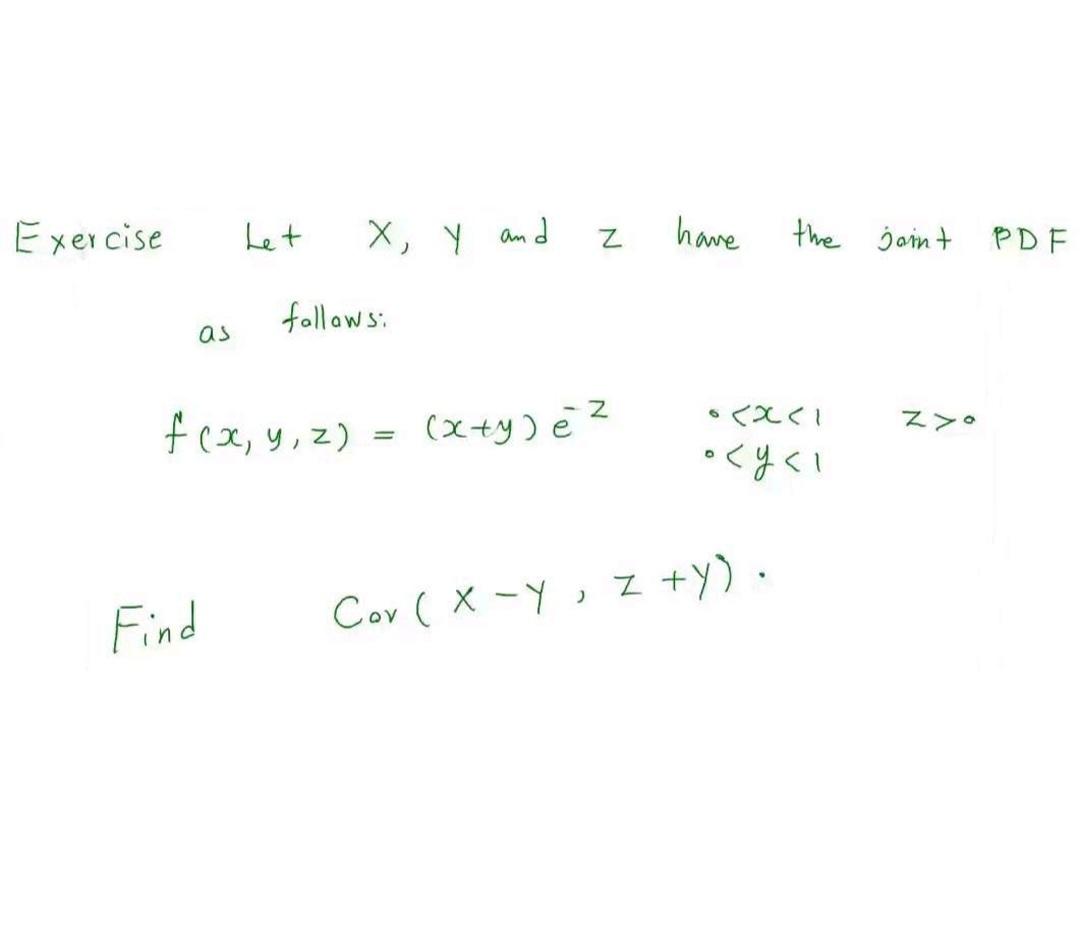 Exercise Let X, Y and Z have the joint PDF
as follows:
f(x, y, z) = (x+y) e^{-z} 0<x<1 z>0
0<y<1
Find Cov(X-Y, Z+Y).